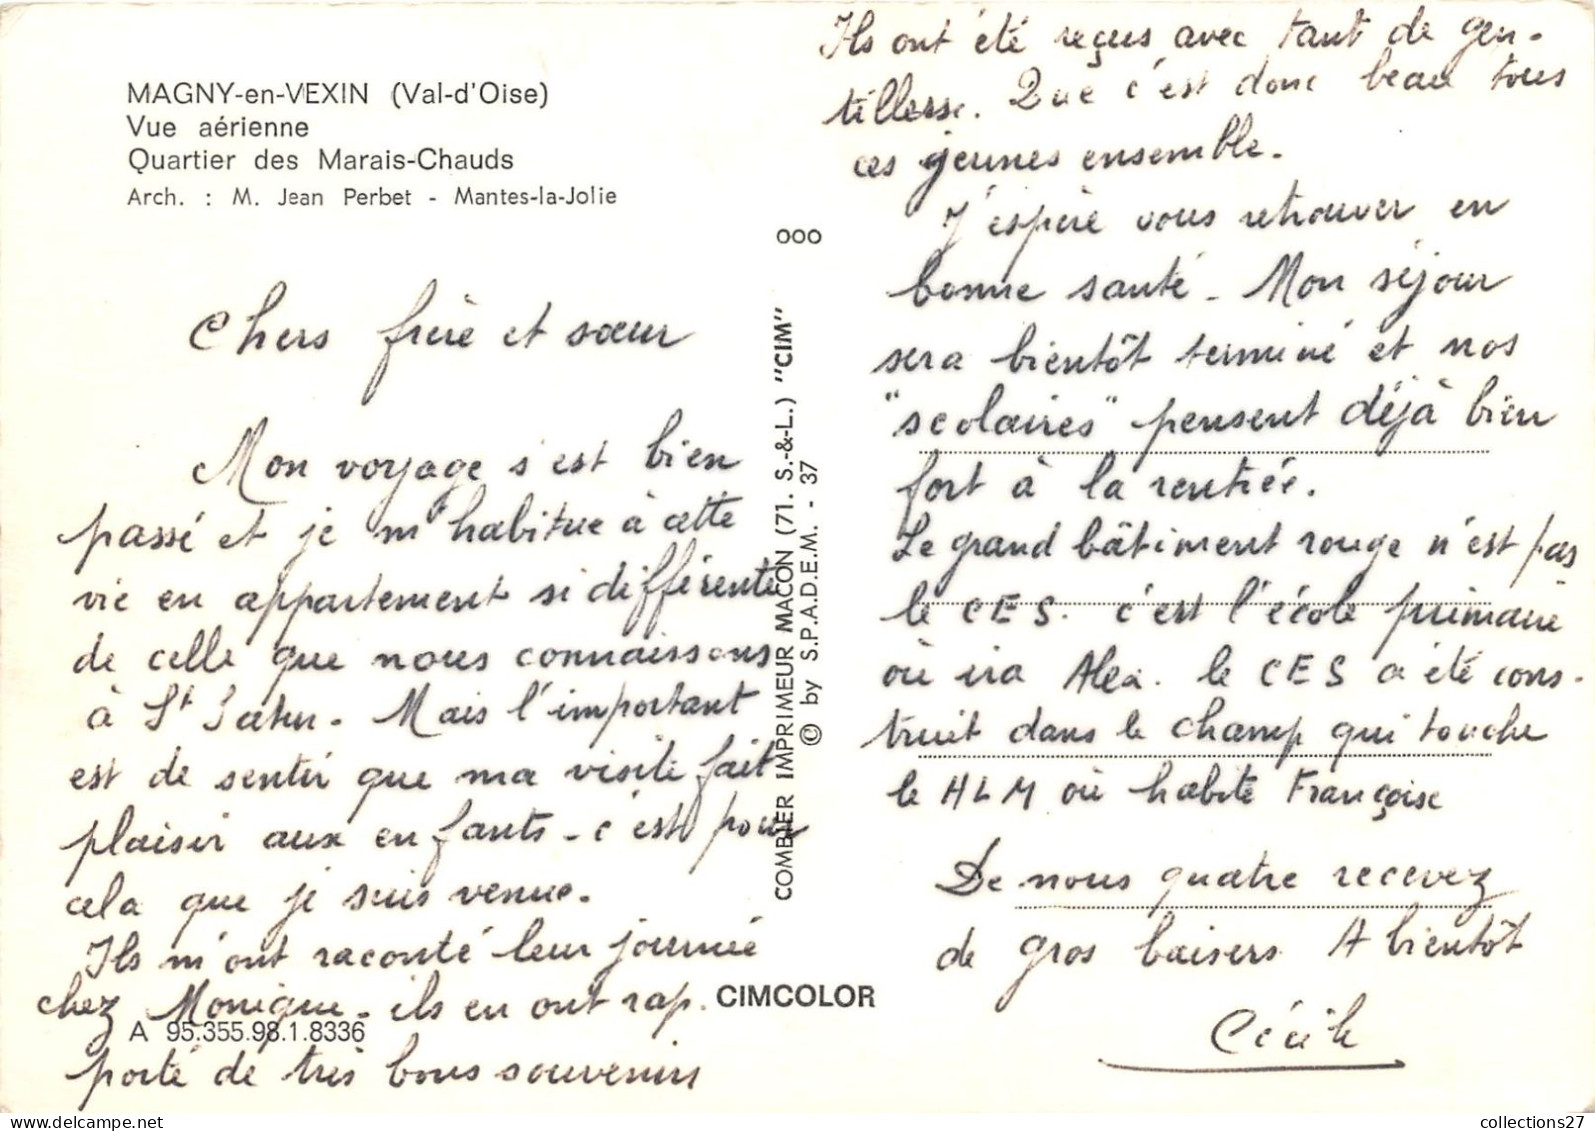 MAGNY-en-VEXIN (Val-d'Oise)
Vue aérienne
Quartier des Marais-Chauds
Arch. : M. Jean Perbet - Mantes-la-Jolie
Chers frère et sœur
Mon voyage s'est bien
passé et je m'habitue à cette
vie en appartement si différente
de celle que nous connaissons
à St . Mais l'important
est de sentir que ma visite fait
plaisir aux enfants - c'est pour
cela que je suis venue.
Ils m'ont raconté leur journée
chez Monique - ils en ont rap.
porté de très bons souvenirs
A 95.355.98.1.8336
ooo
COMBIER IMPRIMEUR MACON (71. S.-&-L.) "CIM"
© by S.P.A.D.E.M. - 37
CIMCOLOR
Ils ont été reçus avec tant de gen-
tillesse. Que c'est donc beau tous
ces jeunes ensemble.
J'espère vous retrouver en
bonne santé - Mon séjour
sera bientôt terminé et nos
"scolaires" pensent déjà bien
fort à la rentrée.
Le grand bâtiment rouge n'est pas
le CES. c'est l'école primaire
où ira Alex. le CES a été cons-
truit dans le champ qui touche
le HLM où habite Françoise
De nous quatre recevez
de gros baisers. A bientôt
Cécile
collections27